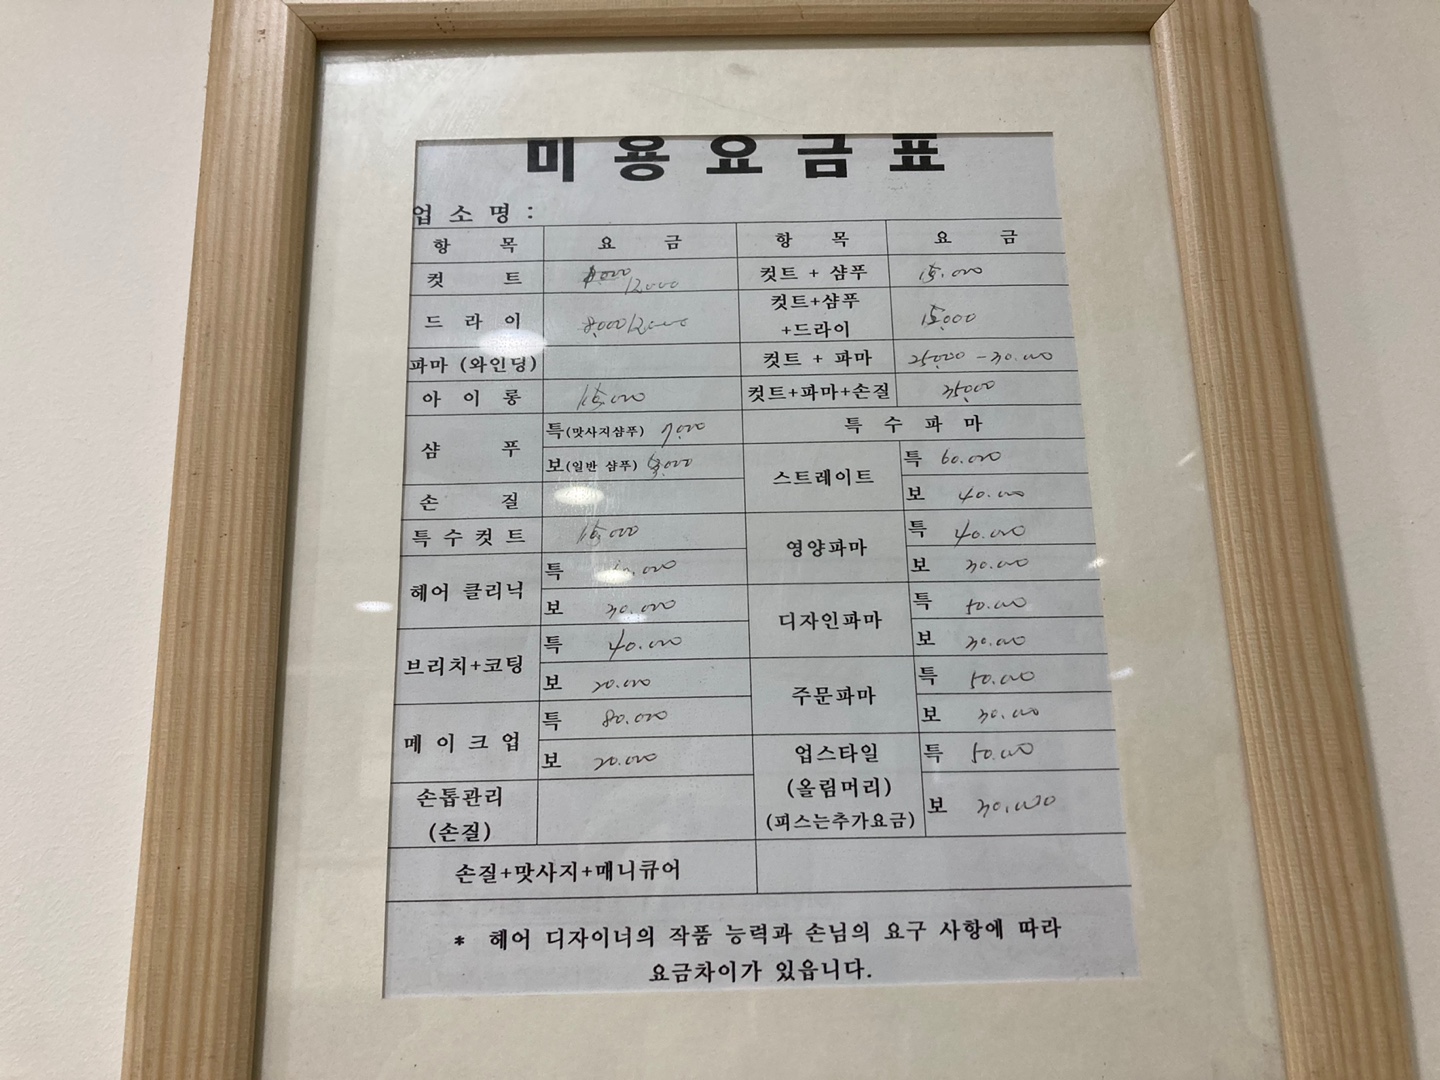 미 용 요 금 표
업 소 명 :
항 목 요 금 항 목 요 금
컷 트 12000 컷트 + 샴푸 15.000
드 라 이 8,000 12000 컷트+샴푸+드라이 15,000
파마 (와인딩) 컷트 + 파마 25,000 - 30.000
아 이 롱 15.000 컷트+파마+손질 35,000
샴 푸 특(맛사지샴푸) 7,000 특 수 파 마
보(일반 샴푸) 스트레이트 특 60.000
손 질 보 40.000
특 수 컷 트 15.000 영양파마 특 40.000
헤어 클리닉 특 보 30.000
보 30.000 디자인파마 특 50.000
브리치+코팅 특 40.000 보 30.000
보 20.000 주문파마 특 50.000
메 이 크 업 특 80.000 보 30.000
보 20.000 업스타일 특 50.000
손톱관리 (올림머리) 보 30.000
(손질) (피스는추가요금)
손질+맛사지+매니큐어
* 헤어 디자이너의 작품 능력과 손님의 요구 사항에 따라
요금차이가 있읍니다.